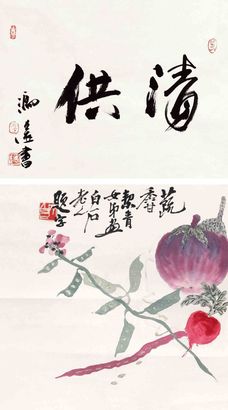 清供
蔬
香
絜青
女弟畫
白石
老人
題字